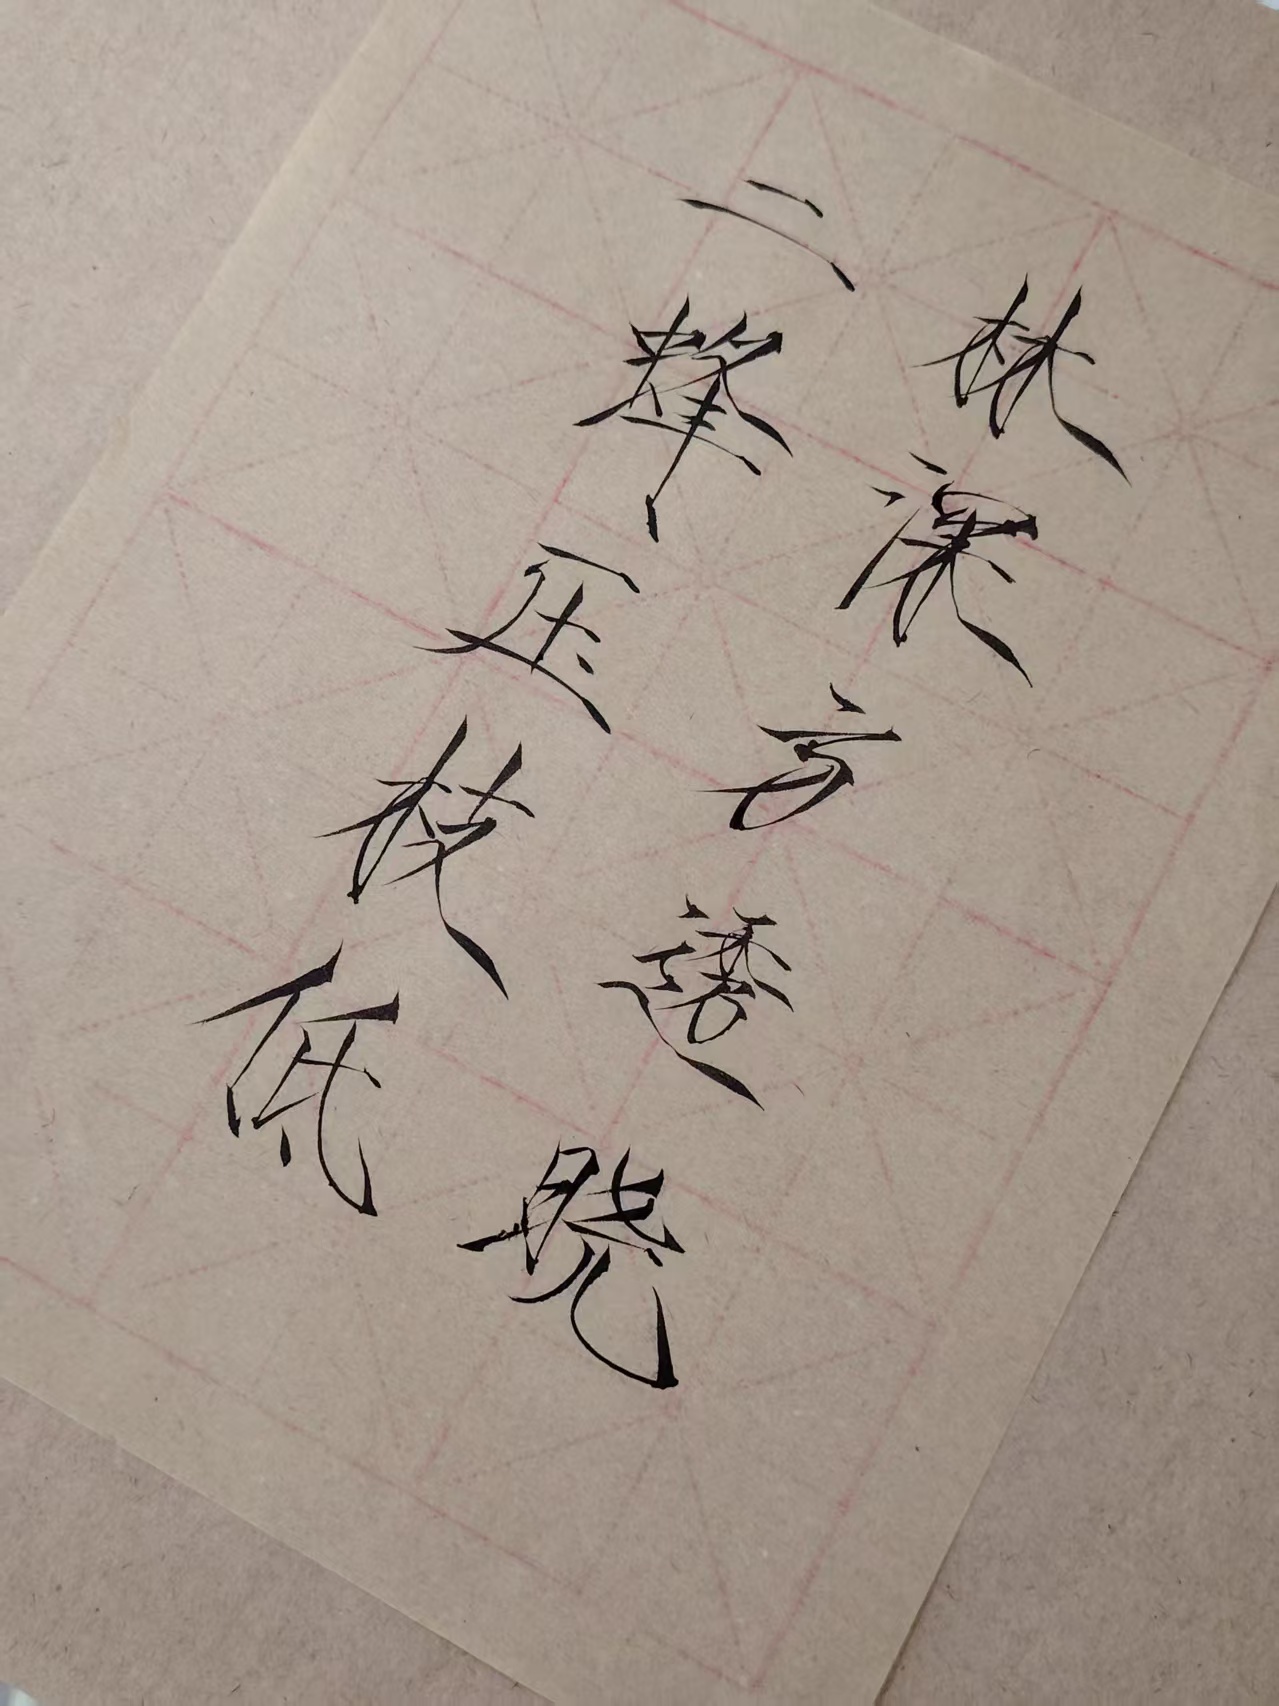 林深方透晓
二蜂压枝低